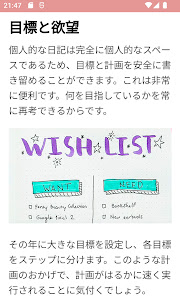 21:47
目標と欲望
個人的な日記は完全に個人的なスペ
ースであるため、目標と計画を安全に書
き留めることができます。これは非常
に便利です。何を目指しているかを常
に再考できるからです。
WISH LIST
WANT
NEED
Fenty Beauty Collection
Bookshelf
Google Pixel 2
New earbuds
その年に大きな目標を設定し、各目標
をステップに分けます。このような計
画のおかげで、計画がはるかに速く実
行されることに気付くでしょう。